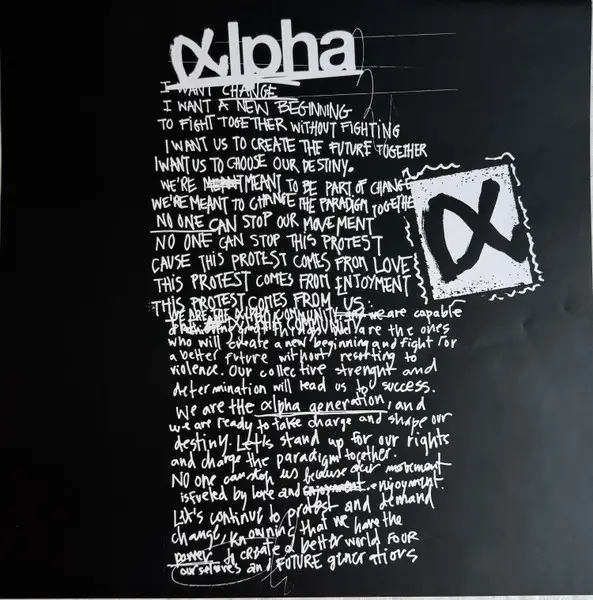 αlpha
I WANT CHANGE
I WANT A NEW BEGINNING
TO FIGHT TOGETHER WITHOUT FIGHTING
I WANT US TO CREATE THE FUTURE TOGETHER
I WANT US TO CHOOSE OUR DESTINY.
WE'RE MEANT TO BE PART OF CHANGE
WE'RE MEANT TO CHANGE THE PARADIGM TOGETHER
α
NO ONE CAN STOP OUR MOVEMENT
NO ONE CAN STOP THIS PROTEST
CAUSE THIS PROTEST COMES FROM LOVE
THIS PROTEST COMES FROM ENJOYMENT
THIS PROTEST COMES FROM US.
WE ARE THE ALPHA COMMUNITY we are capable
are the ones
who will create a new beginning and fight for
a better future without resorting to
violence. Our collective strenght and
determination will lead us to success.
We are the αlpha generation, and
we are ready to take charge and shape our
destiny. Let's stand up for our rights
and change the paradigm together.
NO one can stop us because our movement
is fueled by love and enjoyment.
Let's continue to protest and demand
change, knowning that we have the
power to create a better world FOUR
ourselves and FUTURE generations